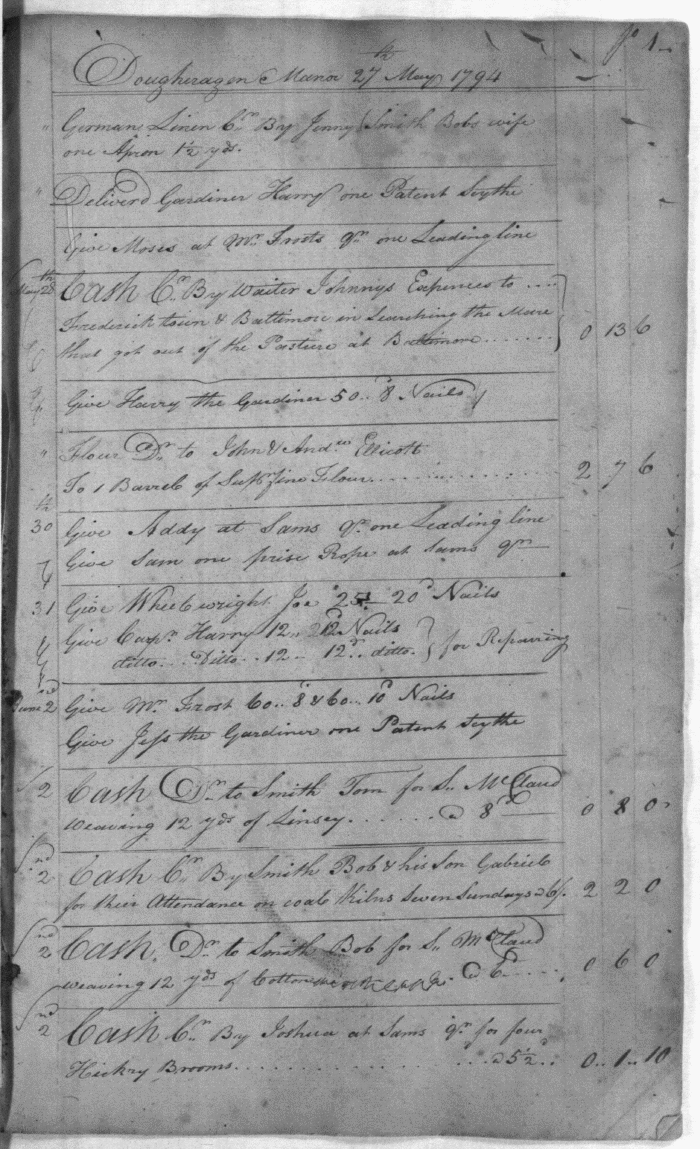 po 1
Dougheragen Manor 27th May 1794
" German Linen Cr. By Jenny (Smith Bobs wife
one Apron 1½ yds.
" Deliverd Gardiner Harry one Patent Scythe
Give Moses at Mr. Frosts qr. one Leading line
May 28th Cash Cr. By Waiter Johnnys Expences to ....
Fredericktown & Baltimore in Searching the Mare
that got out of the Pasture at Baltimore....... } 0 13 6
Give Harry the Gardiner 50.. 8d Nails
" Flour Dr. to John & Andw. Ellicott
To 1 Barrel of Supr. fine Flour............. 2 7 6
30th Give Addy at Sams qr. one Leading line
Give Sam one prise Rope at Sams qr.
31 Give Wheelwright Joe 25 20d Nails
Give Carpr. Harry 12 Nails
ditto.... Ditto.. 12.. 12d. ditto. } for Repairing
June 2nd Give Mr. Frost 60.. 8d & 60.. 10d Nails
Give Jess the Gardiner one Patent Scythe
2 Cash Dr. to Smith Tom for S. McClaud
weaving 12 yds of Linsey....... @ 8d 0 8 0
2nd Cash Cr. By Smith Bob & his Son Gabriel
for their Attendance on coal Kilns Seven Sundays @ 6/. 2 2 0
2nd Cash. Dr. to Smith Bob for S. McClaud
weaving 12 yds of Cotton @ 6d.... 0 6 0
2nd Cash Cr. By Joshua at Sams qr. for four
Hickry Brooms................ @ 5½d.. 0.. 1.. 10